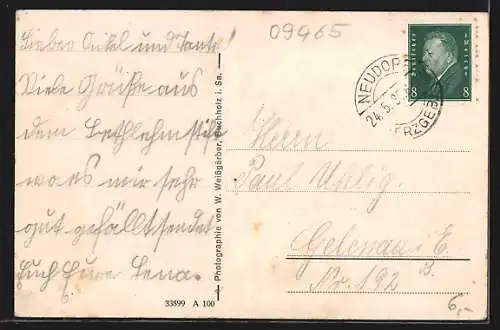 09465
Lieber Onkel und Tante!
Viele Grüße aus
dem Bethlehmstift
wo es mir sehr
gut gefällt sendet
Euch Eure Lena.
Photographie von W. Weißgärber, Buchholz i. Sa.
33899 A 100
Deutsches Reich
8 8
NEUDORF
24.5.
ERZGEB
Herrn
Paul Uhlig.
Gelenau i. E.
Nr. 192
6,-